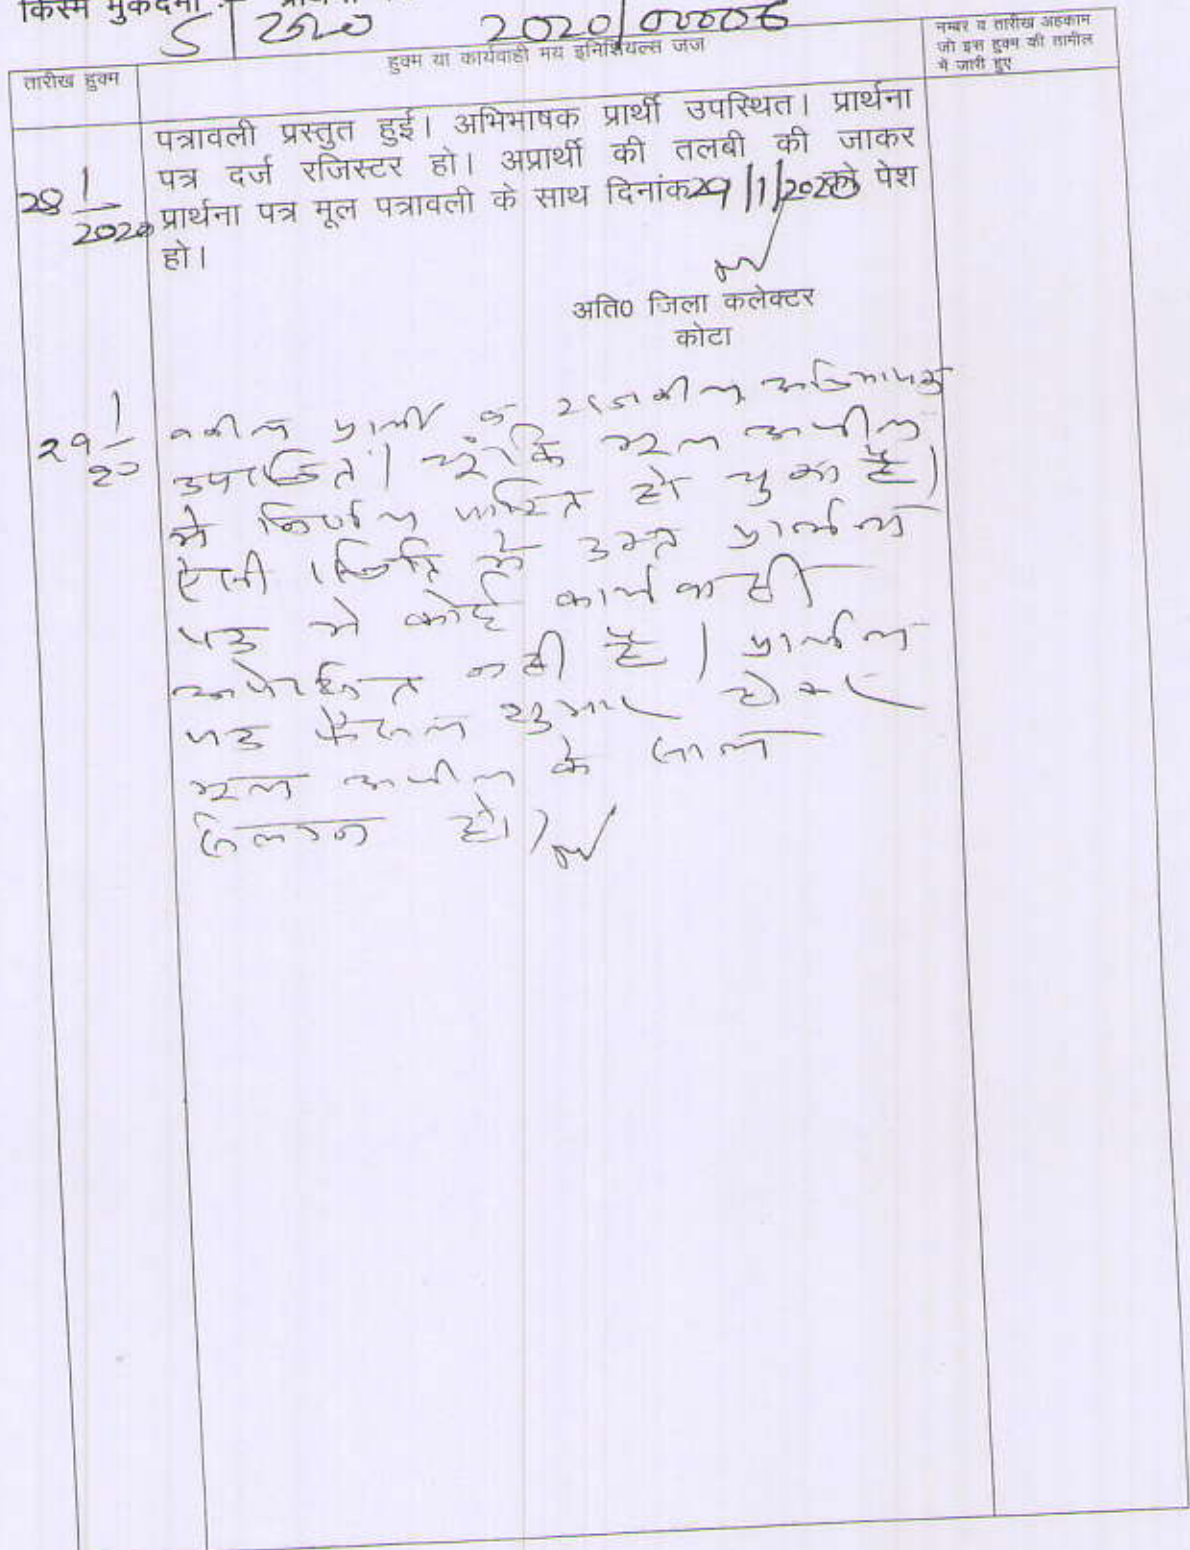 किस्म मुकदमा :-
5 / 2020 2020/00006
तारीख हुक्म
हुक्म या कार्यवाही मय इनिशियल्स जज
नम्बर व तारीख अहकाम
जो इस हुक्म की तामील
में जारी हुए
28/1/2020
पत्रावली प्रस्तुत हुई। अभिभाषक प्रार्थी उपस्थित। प्रार्थना
पत्र दर्ज रजिस्टर हो। अप्रार्थी की तलबी की जाकर
प्रार्थना पत्र मूल पत्रावली के साथ दिनांक 29/1/2020 को पेश
हो।
अति0 जिला कलेक्टर
कोटा
29/1/20
वकील प्रार्थी व राजकीय अभिभाषक
उपस्थित। चूंकि मूल अपील
में निर्णय पारित हो चुका है।
ऐसी स्थिति में उक्त प्रार्थना
पत्र में कोई कार्यवाही
अपेक्षित नहीं है। प्रार्थना
पत्र फैसल शुमार होकर
मूल अपील के साथ
संलग्न हो।